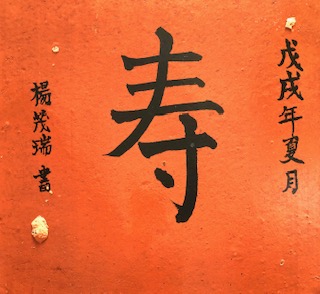 戊戌年夏月
寿
楊茂瑞書